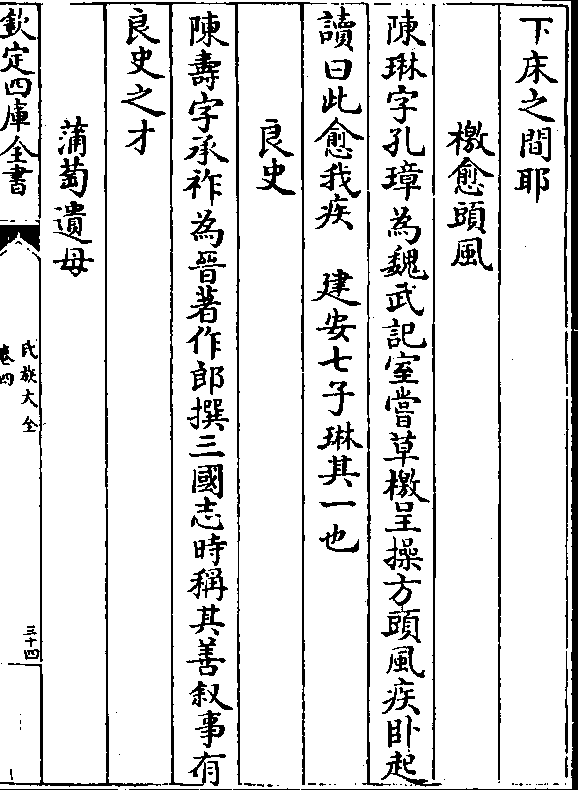 下床之間耶
檄愈頭風
陳琳字孔璋為魏武記室嘗草檄呈操方頭風疾卧起
讀曰此愈我疾　建安七子琳其一也
良史
陳壽字承祚為晉著作郎撰三國志時稱其善叙事有
良史之才
蒲萄遺母
欽定四庫全書
氏族大全
卷四
三十四